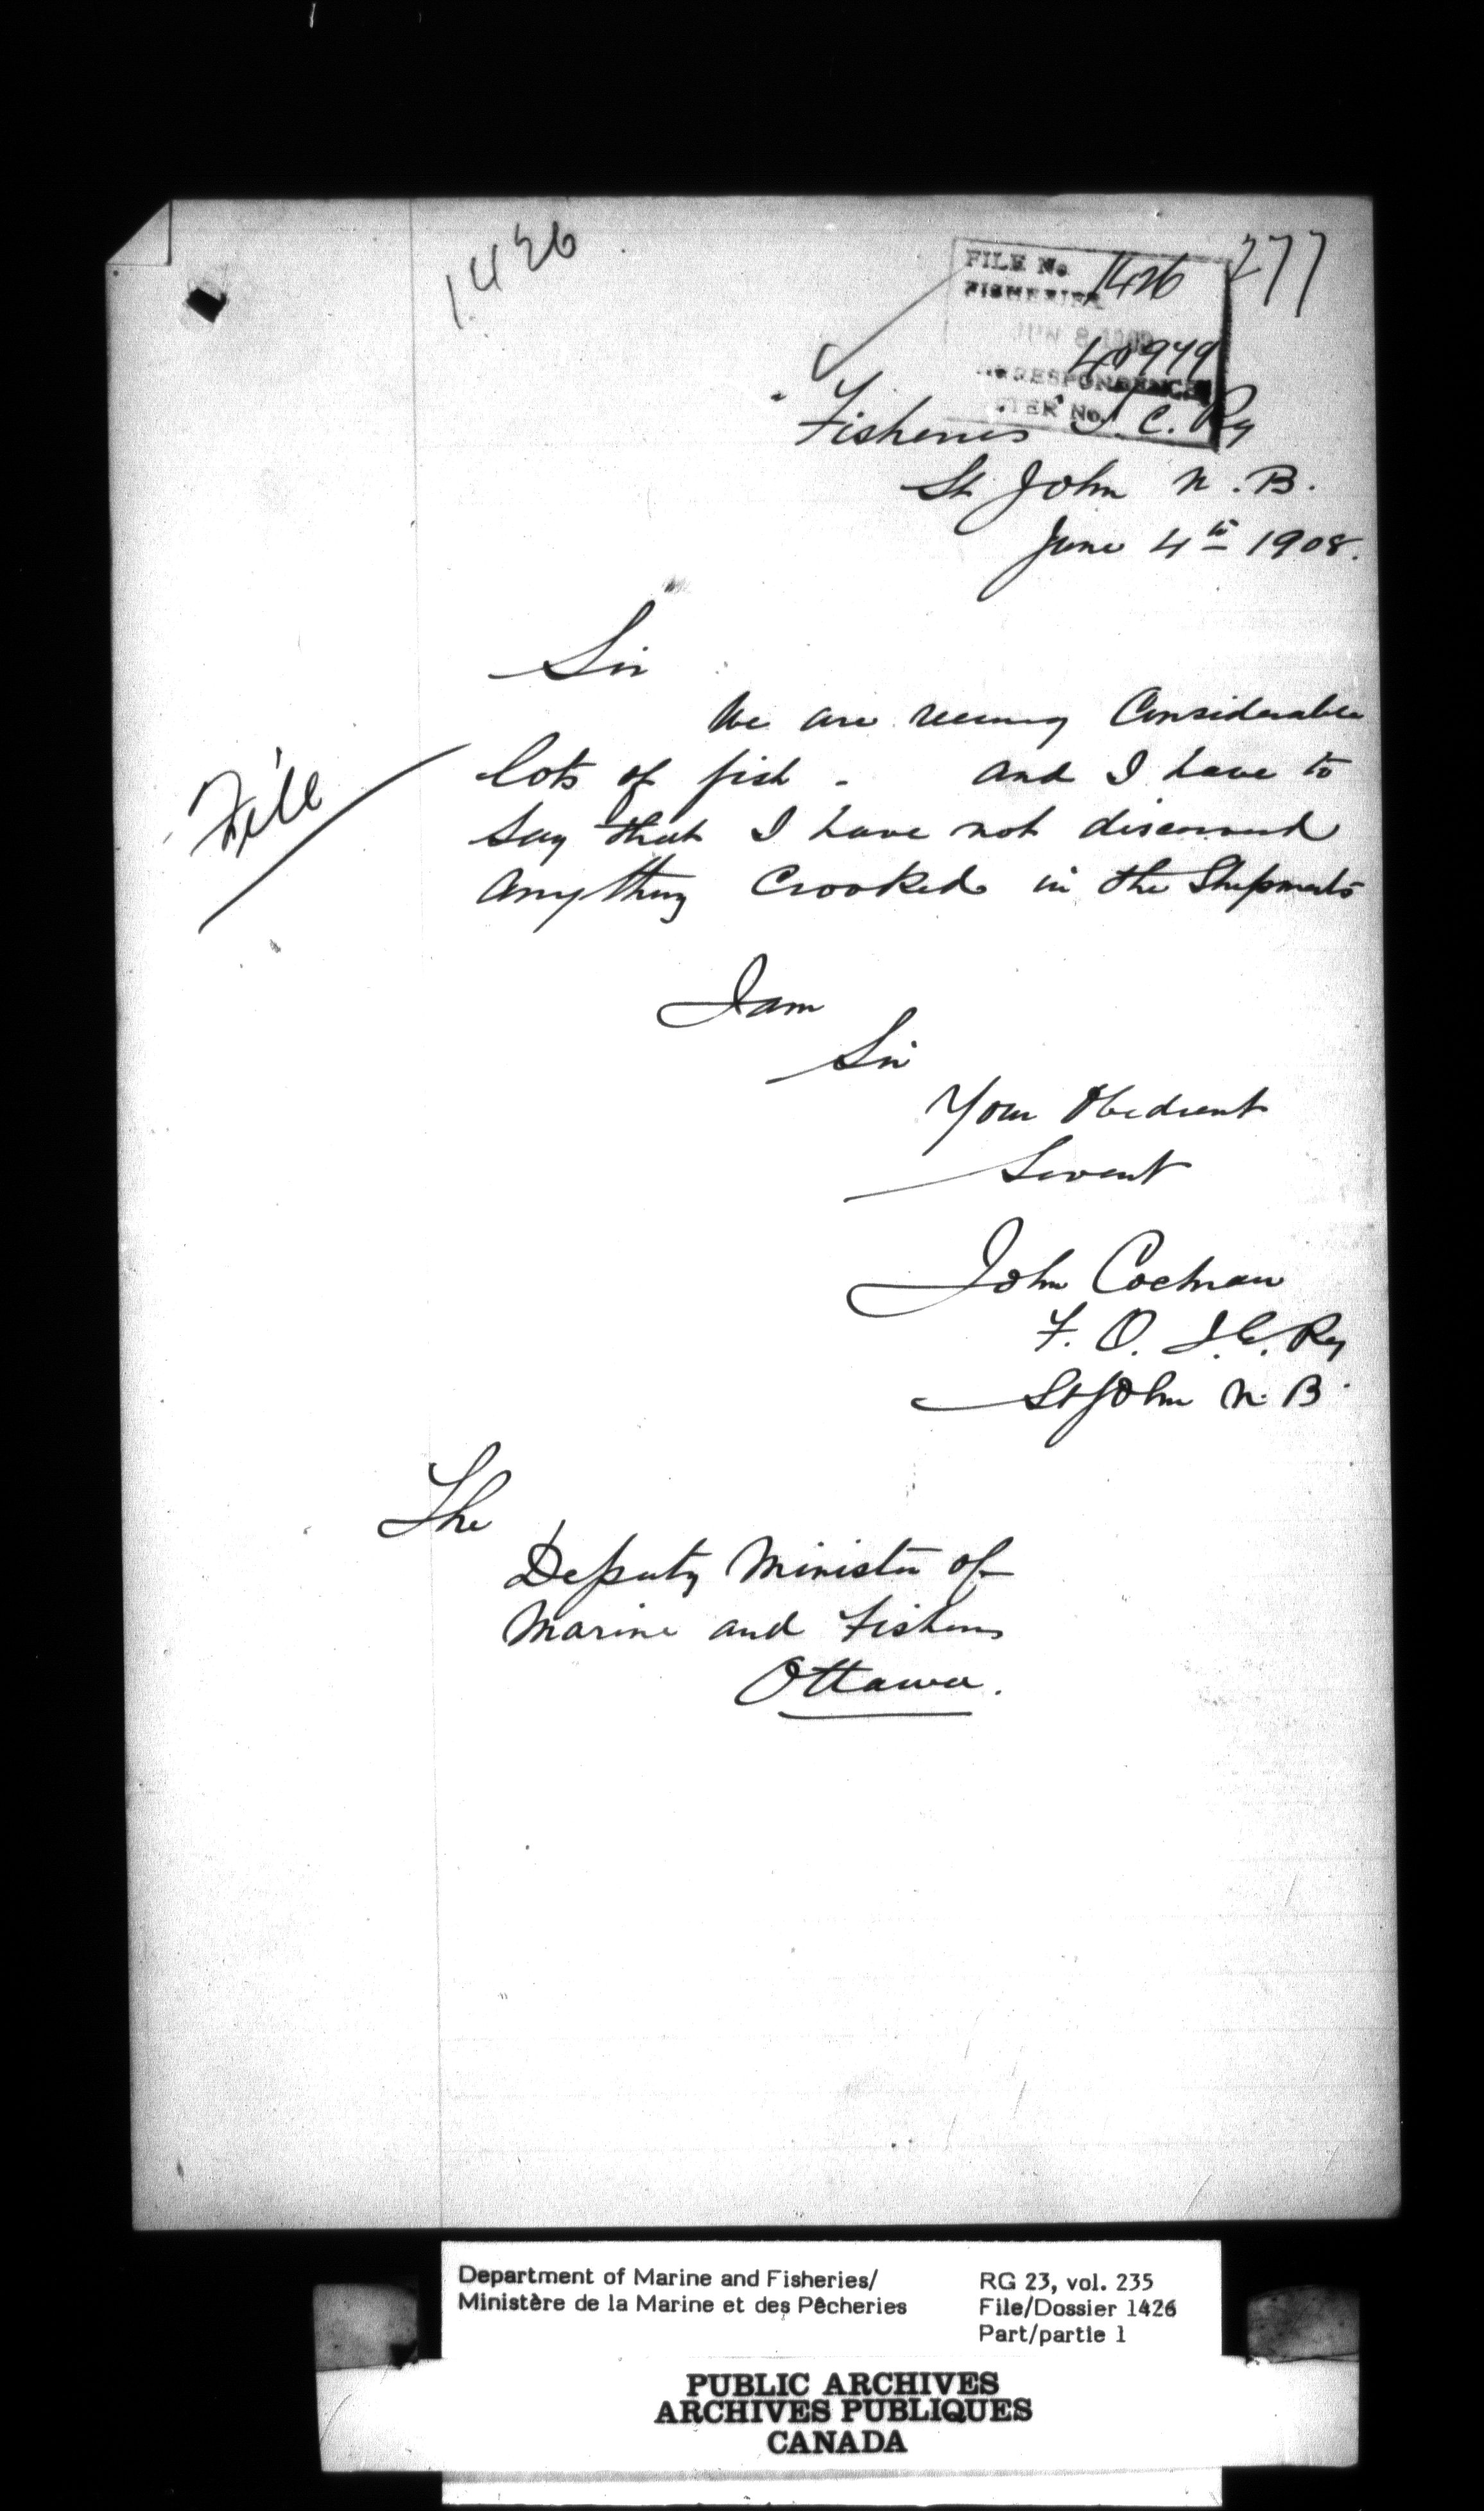 1426
277
FILE No. 1426
FISHERIES
JUN 8 1908
40979
CORRESPONDENCE
LETTER No.
Fisheries I. C. Ry
St John N. B.
June 4th 1908.
Sir
We are receiving Considerable
lots of fish - and I have to
File
say that I have not discovered
anything Crooked in the Shipments
I am
Sir
Your Obedient
Servent
John Cochran
F. O. I. C. Ry
St John N. B.
The
Deputy Minister of
Marine and Fisheries
Ottawa.
Department of Marine and Fisheries/
Ministère de la Marine et des Pêcheries
RG 23, vol. 235
File/Dossier 1426
Part/partie 1
PUBLIC ARCHIVES
ARCHIVES PUBLIQUES
CANADA